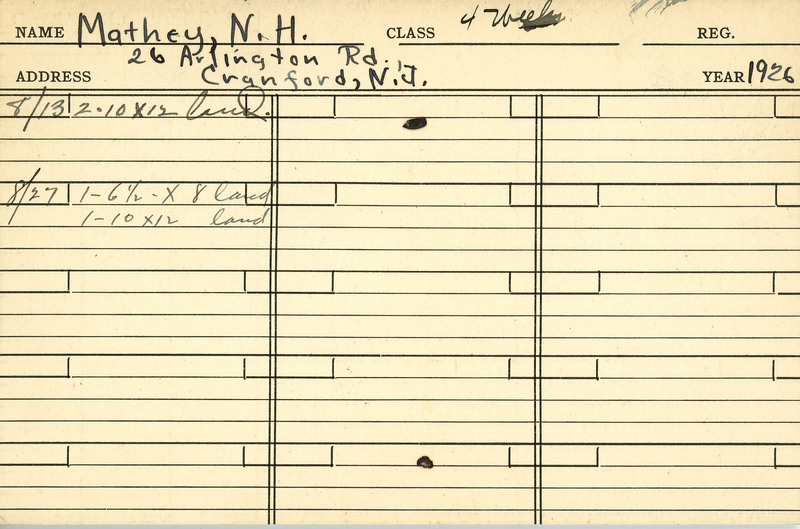 NAME Mathey, N. H. CLASS 4 Weeks REG.
26 Arlington Rd.,
ADDRESS Cranford, N.J. YEAR 1926
8/13 2-10 x 12 land.
8/27 1-6½ - x 8 land
1-10 x 12 land